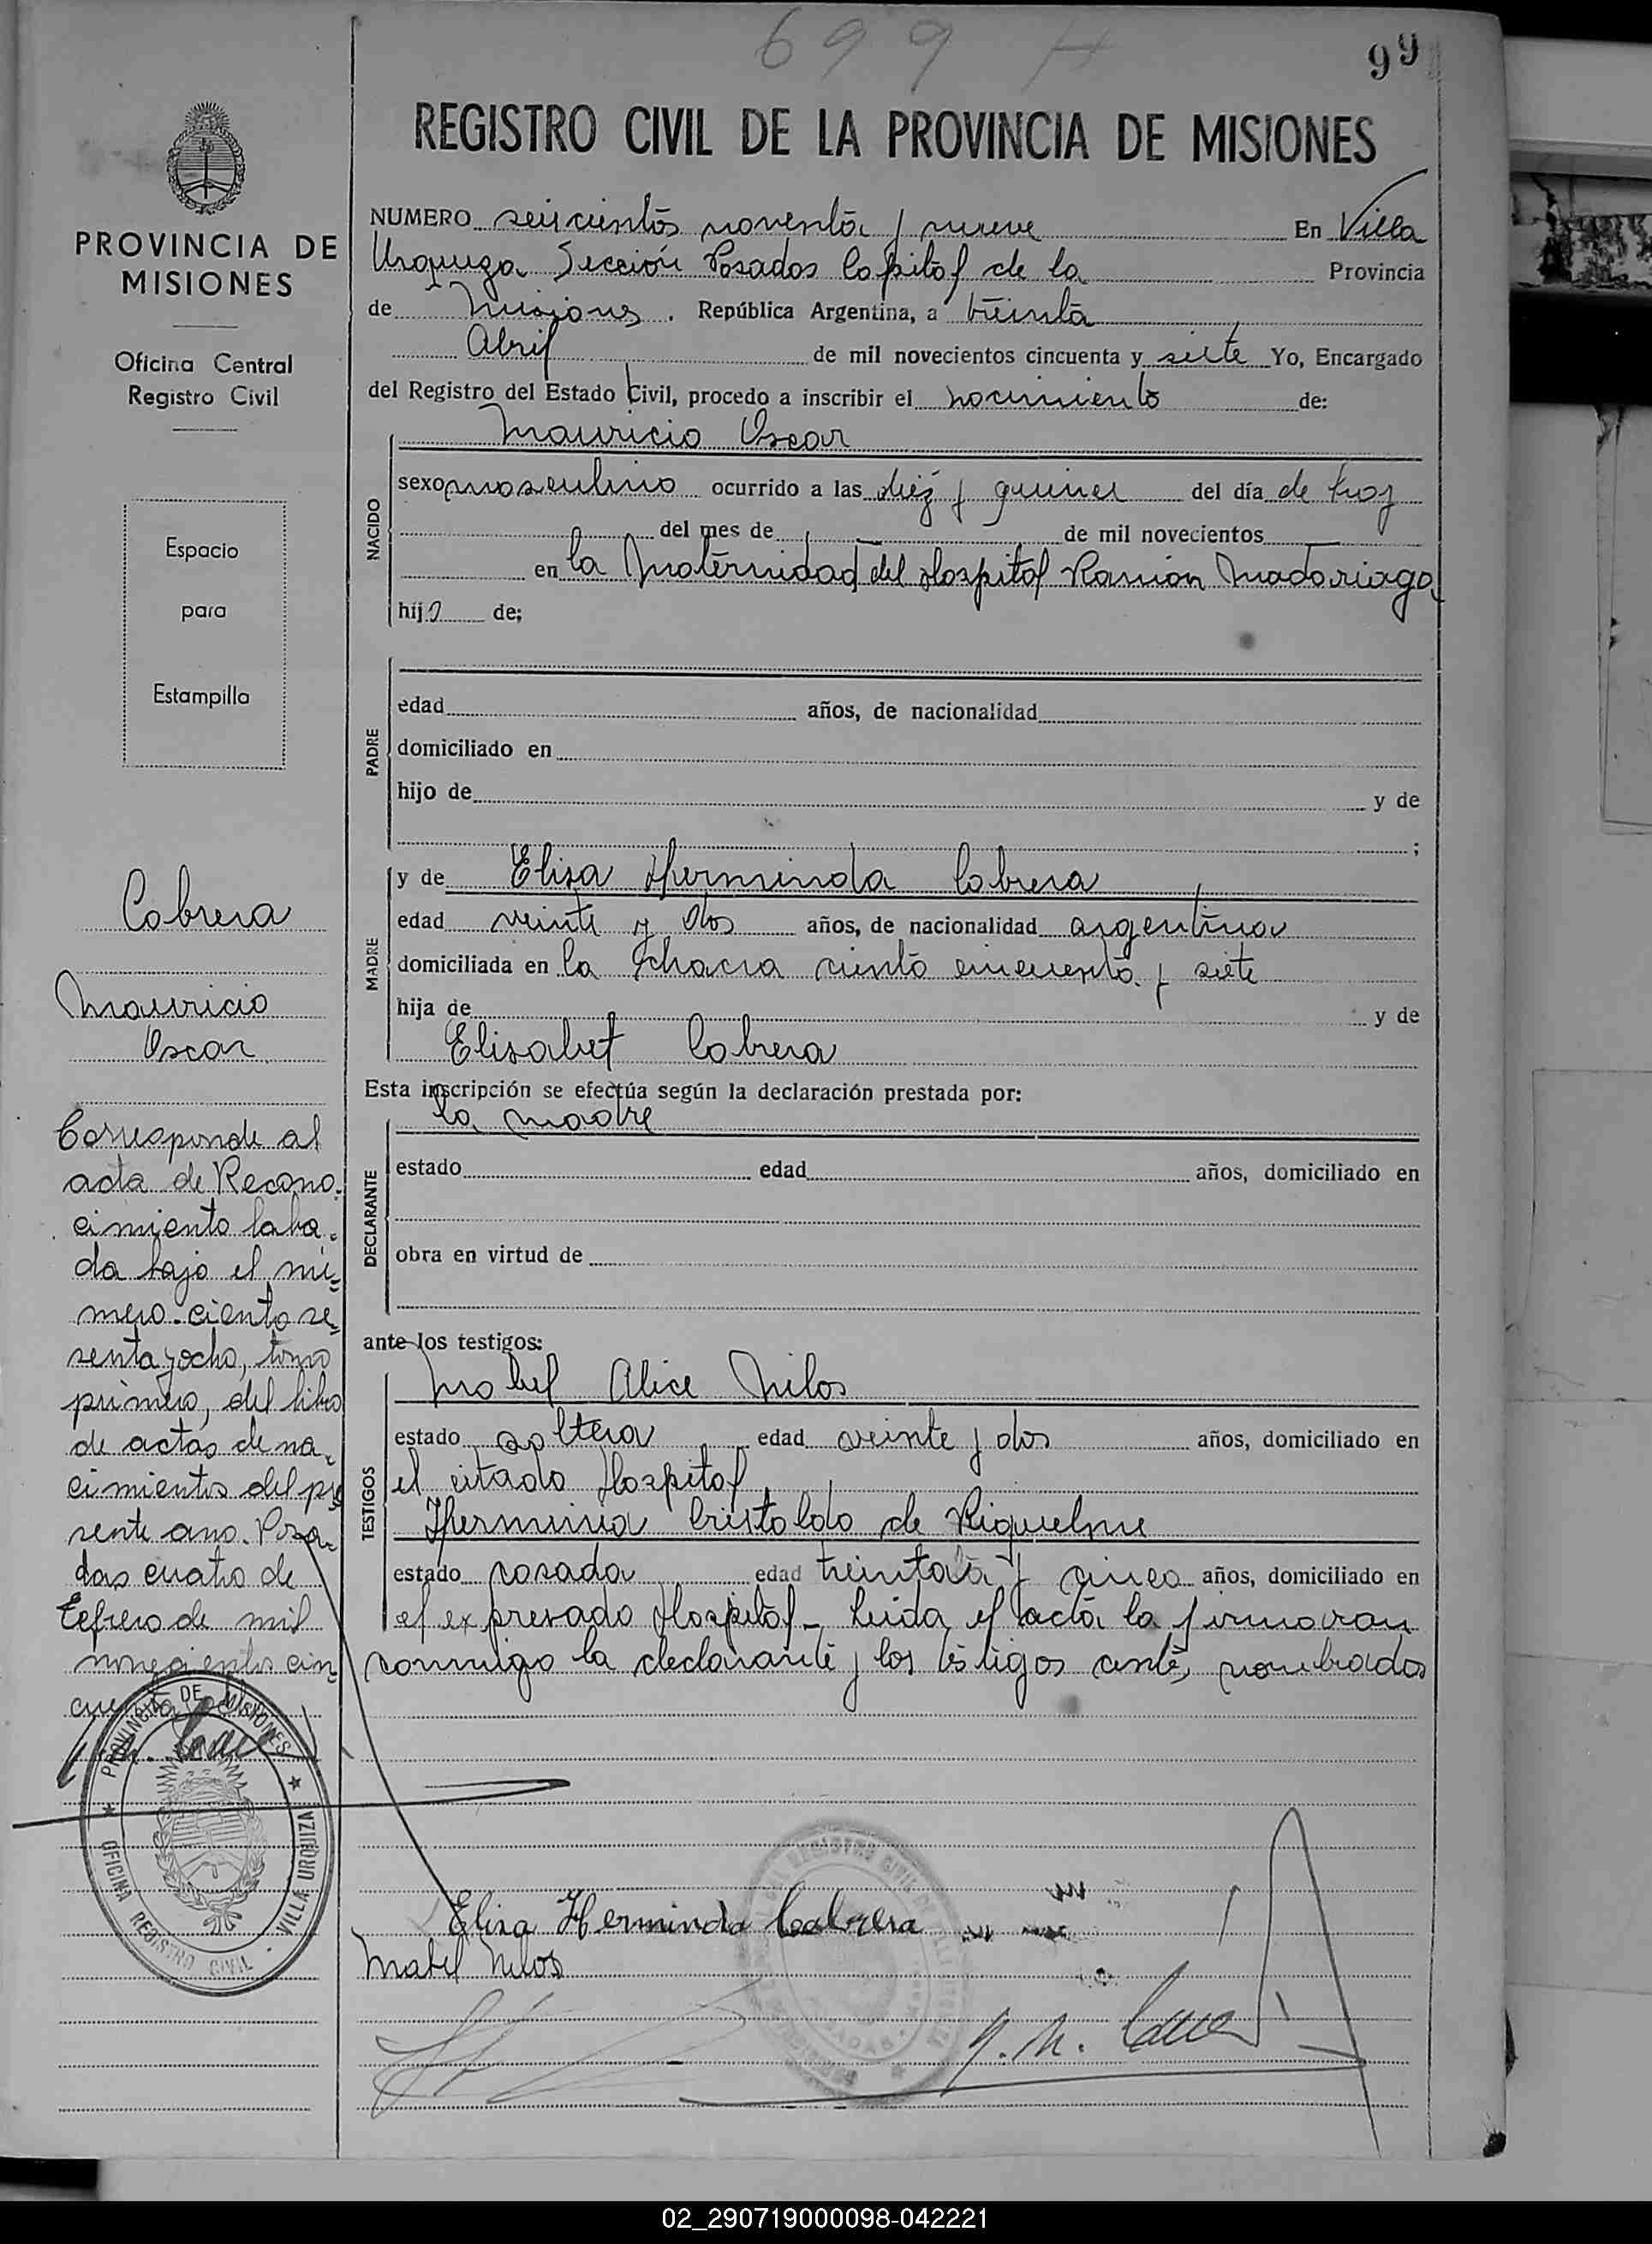 699
99
REGISTRO CIVIL DE LA PROVINCIA DE MISIONES
PROVINCIA DE
MISIONES
Oficina Central
Registro Civil
Espacio
para
Estampilla
Cabrera
Mauricio
Oscar
Corresponde al
acta de Recono-
cimiento laba-
da bajo el nú-
mero ciento se-
senta y ocho, tomo
primero, del libro
de actas de na-
cimientos del pre
sente ano. Posa-
das cuatro de
Febrero de mil
novecientos cin
cuenta y ocho
PROVINCIA DE MISIONES
OFICINA REGISTRO CIVIL - VILLA URQUIZA
NUMERO seiscientos noventa y nueve En Villa
Urquiza Sección Posadas Capital de la Provincia
de Misiones. República Argentina, a treinta
Abril de mil novecientos cincuenta y siete Yo, Encargado
del Registro del Estado Civil, procedo a inscribir el nacimiento de:
Mauricio Oscar
NACIDO
sexo masculino ocurrido a las diez y quince del día de hoy
del mes de de mil novecientos
en la Maternidad del Hospital Ramón Madariaga
hijo de;
PADRE
edad años, de nacionalidad
domiciliado en
hijo de y de
;
MADRE
y de Elisa Herminda Cabrera
edad veinte y dos años, de nacionalidad argentina
domiciliada en la Chacra ciento cincuenta y siete
hija de y de
Elisabet Cabrera
Esta inscripción se efectúa según la declaración prestada por:
la madre
DECLARANTE
estado edad años, domiciliado en
obra en virtud de
ante los testigos:
TESTIGOS
Mabel Alice Nilos
estado soltera edad veinte y dos años, domiciliado en
el citado Hospital
Herminia Cristaldo de Riquelme
estado casada edad treinta y cinco años, domiciliado en
el expresado Hospital - Leida el acta la firmaron
conmigo la declarante y los testigos antes nombrados
Elisa Herminda Cabrera
Mabel Nilos
02_290719000098-042221